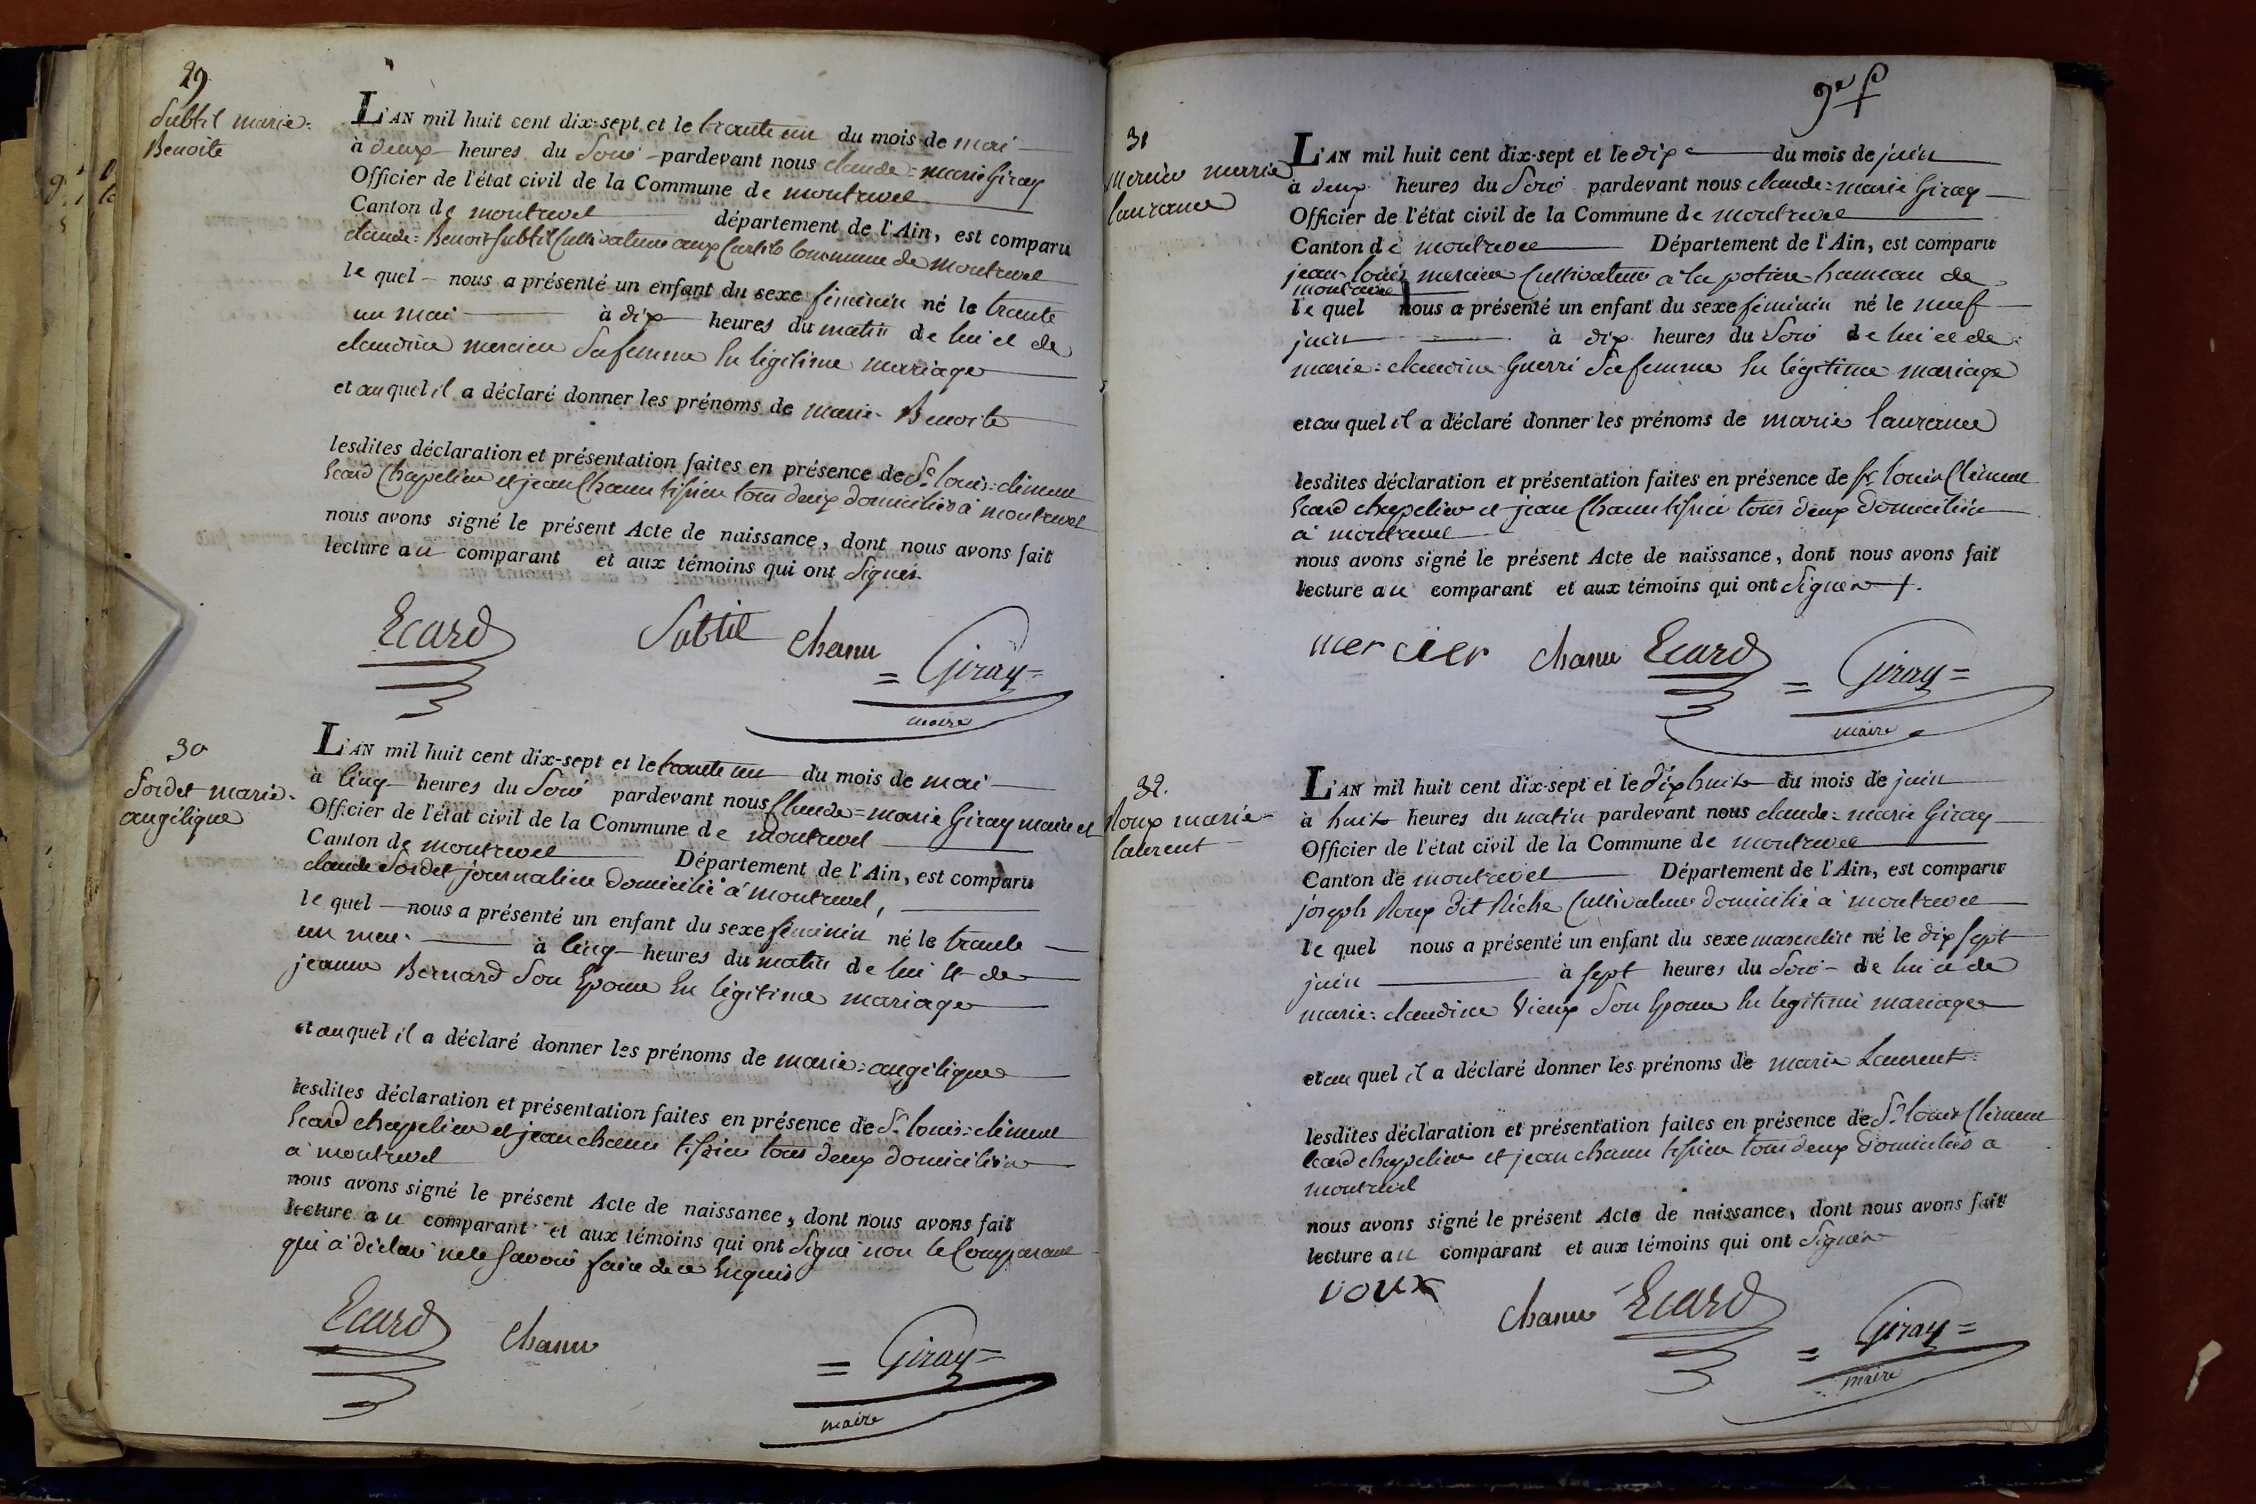 29
Subtil marie=
Benoite
L'AN mil huit cent dix-sept et le trante un du mois de mai
à deux heures du Soir pardevant nous claude=marie Giray
Officier de l'état civil de la Commune de montrevel
Canton de montrevel département de l'Ain, est comparu
claude=Benoit Subtil Cultivateur aux Curtits Commune de montrevel
le quel nous a présenté un enfant du sexe féminin né le trante
un mai à dix heures du matin de lui et de
claudine mercier Sa femme En légitime mariage
et auquel il a déclaré donner les prénoms de marie-Benoite
lesdites déclaration et présentation faites en présence de Sr louis=clément
Ecard Chapelier et jean Chanu tissier tous deux domiciliés à montrevel
nous avons signé le présent Acte de naissance, dont nous avons fait
lecture au comparant et aux témoins qui ont Signés
Ecard Subtil chanu =Giray=
maire
30
Sordet marie-
angélique
L'AN mil huit cent dix-sept et le trante un du mois de mai
à Cinq heures du Soir pardevant nous Claude=marie Giray maire et
Officier de l'état civil de la Commune de montrevel
Canton de montrevel Département de l'Ain, est comparu
claude Sordet journalier domicilié à montrevel,
le quel nous a présenté un enfant du sexe féminin né le trante
un mai à Cinq heures du matin de lui et de
jeanne Bernard Son Epouse En légitime mariage
et auquel il a déclaré donner les prénoms de marie=angélique
lesdites déclaration et présentation faites en présence de Sr louis=clément
Ecard chapelier et jean chanu tissier tous deux domiciliés
à montrevel
nous avons signé le présent Acte de naissance, dont nous avons fait
lecture au comparant et aux témoins qui ont Signé non le Comparant
qui a déclaré ne le Savoir faire de ce Enquis
Ecard chanu =Giray=
maire
9e f
31
Mercier marrie
laurance
L'AN mil huit cent dix-sept et le dix du mois de juin
à deux heures du Soir pardevant nous claude=marie Giray
Officier de l'état civil de la Commune de montrevel
Canton de montrevel Département de l'Ain, est comparu
jean-louis mercier Cultivateur à la potière hameau de
montrevel
le quel nous a présenté un enfant du sexe féminin né le neuf
juin à dix heures du Soir de lui et de
marie=claudine Guerri Sa femme En légitime mariage
et au quel il a déclaré donner les prénoms de marie laurance
lesdites déclaration et présentation faites en présence de Sr louis Clément
Ecard chapelier et jean Chanu tissier tous deux domiciliés
à montrevel
nous avons signé le présent Acte de naissance, dont nous avons fait
lecture au comparant et aux témoins qui ont Signés
mercier chanu Ecard =Giray=
maire
32.
Roux marie-
laurent
L'AN mil huit cent dix-sept et le dix huit du mois de juin
à huit heures du matin pardevant nous claude=marie Giray
Officier de l'état civil de la Commune de montrevel
Canton de montrevel Département de l'Ain, est comparu
joseph Roux dit Riche Cultivateur domicilié à montrevel
le quel nous a présenté un enfant du sexe masculin né le dix sept
juin à sept heures du Soir de lui et de
marie=claudine Vieux Son Epouse En légitime mariage
et au quel il a déclaré donner les prénoms de marie Laurent
lesdites déclaration et présentation faites en présence de Sr louis Clément
Ecard chapelier et jean chanu tissier tous deux domiciliés à
montrevel
nous avons signé le présent Acte de naissance, dont nous avons fait
lecture au comparant et aux témoins qui ont Signés
roux chanu Ecard =Giray=
maire